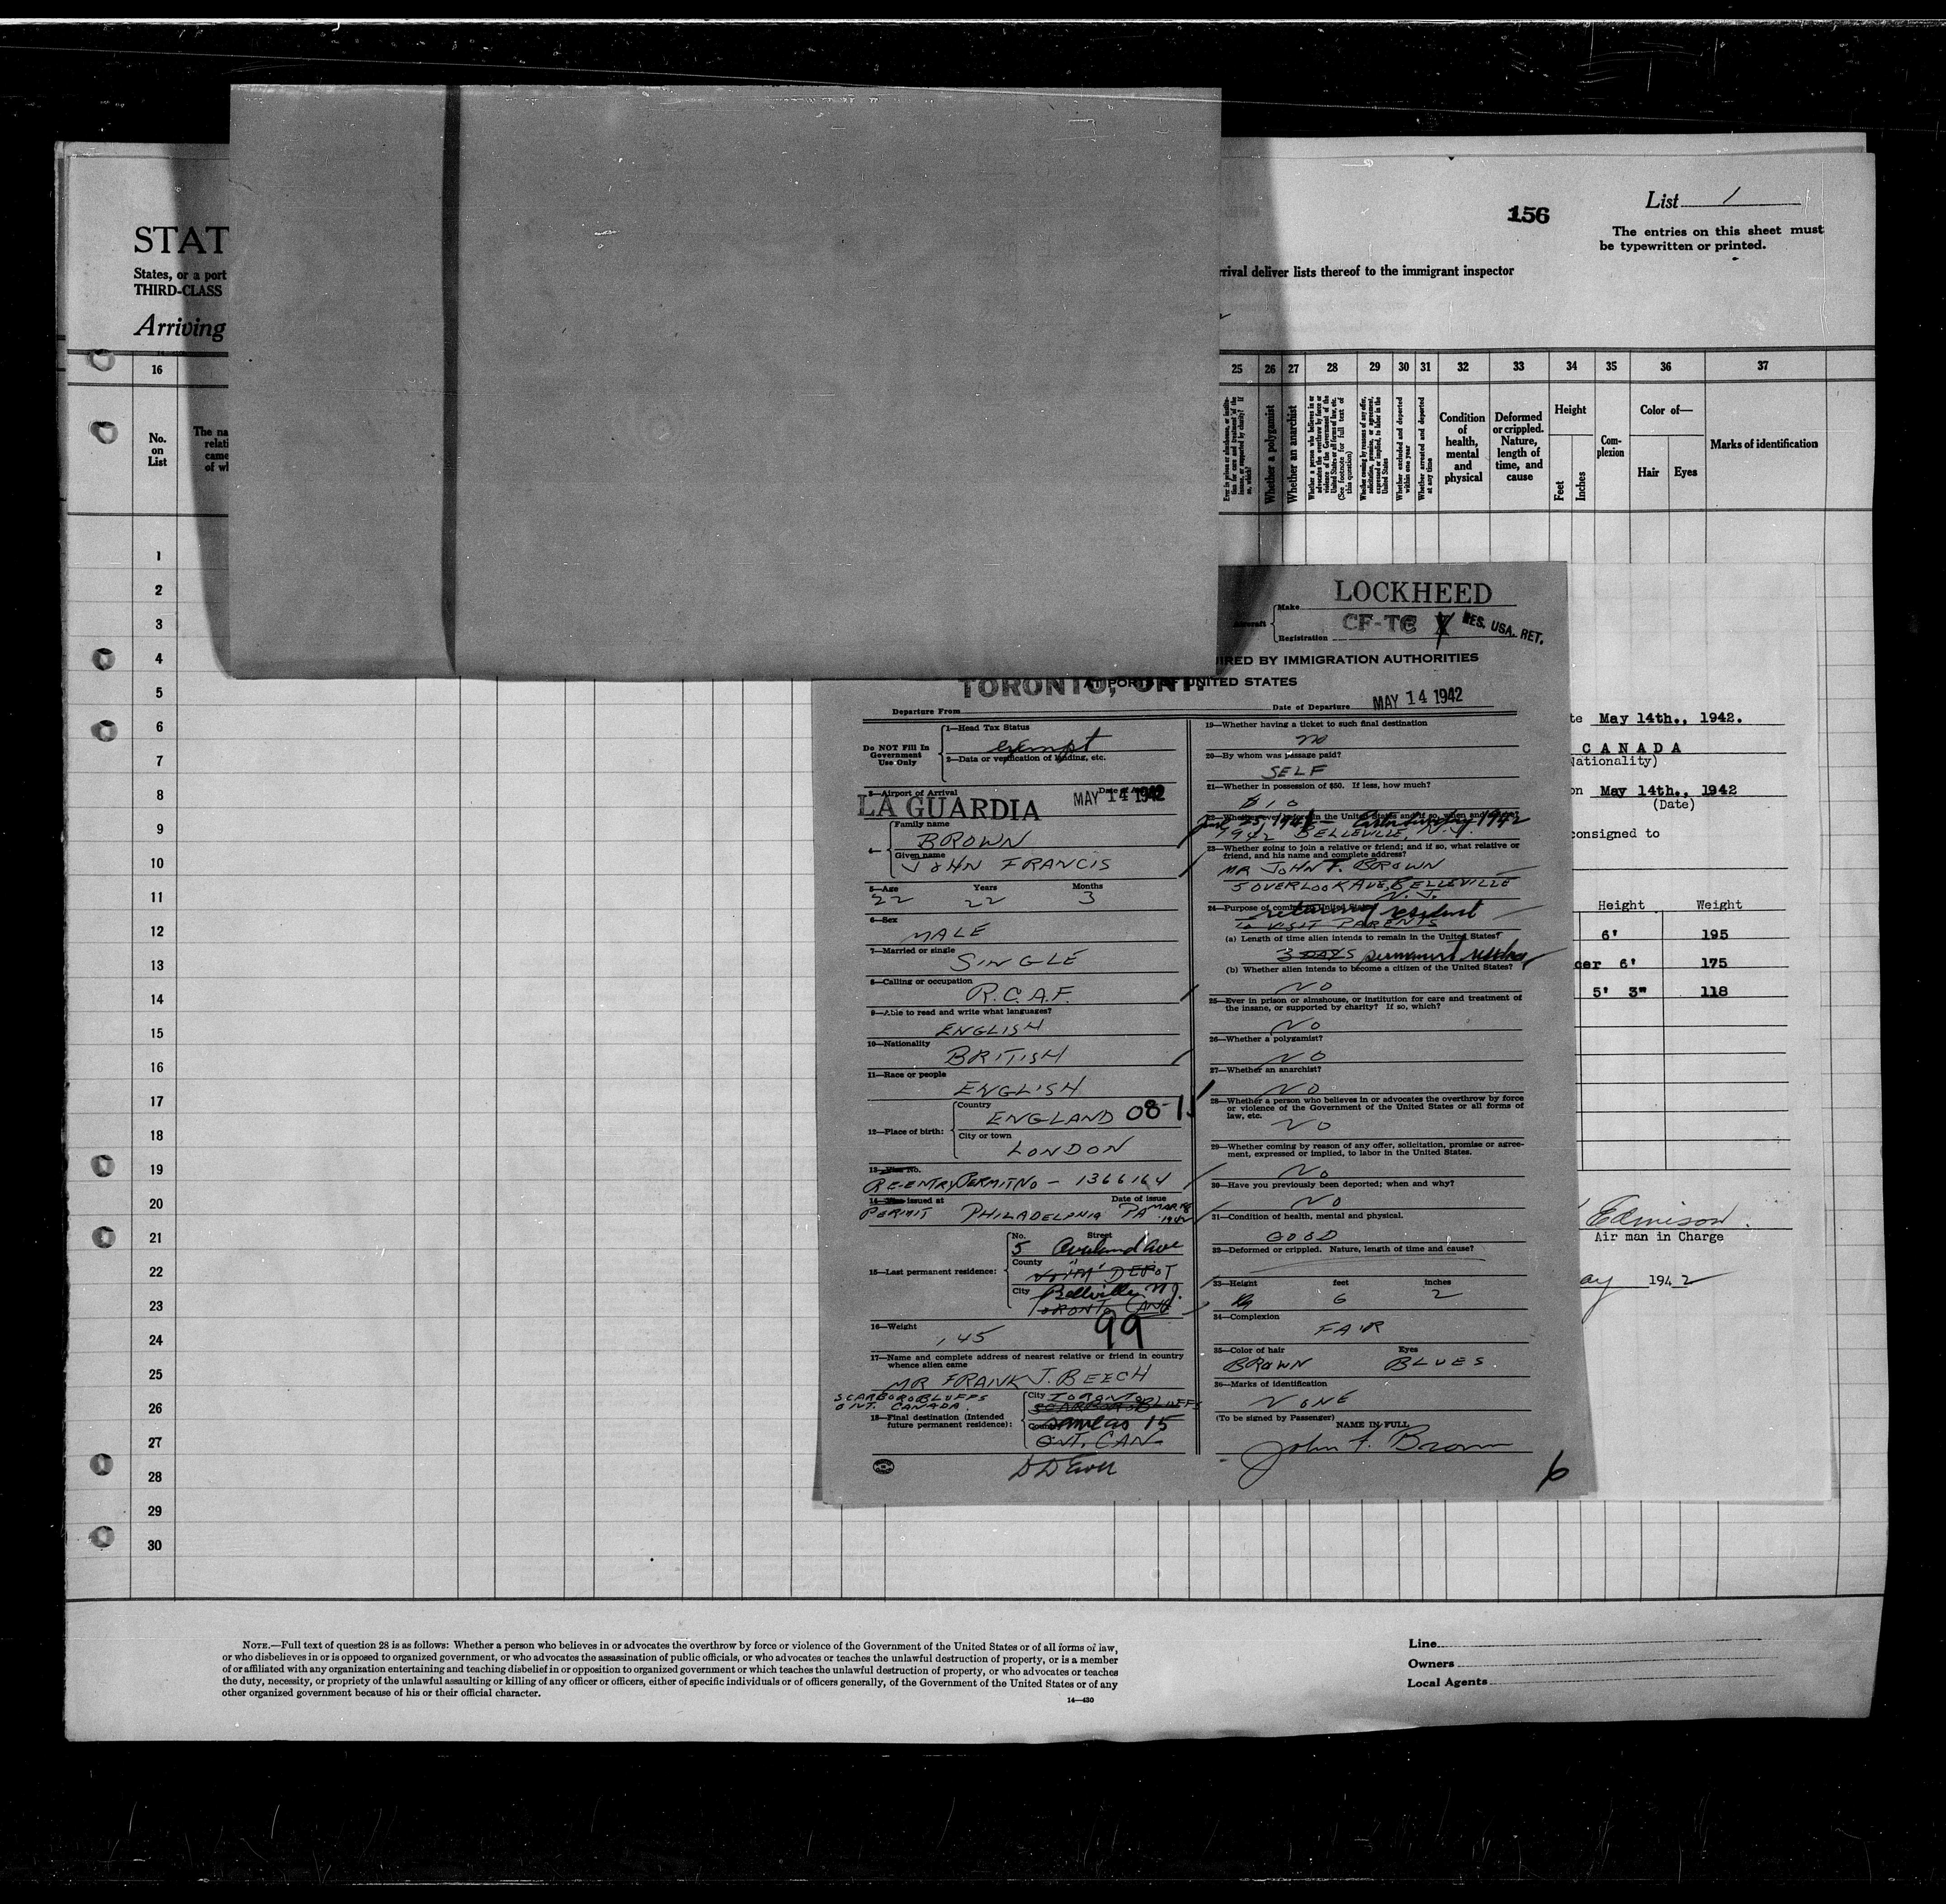 156
List 1
The entries on this sheet must
be typewritten or printed.
STAT
States, or a port
THIRD-CLASS
rrival deliver lists thereof to the immigrant inspector
Arriving
16 25 26 27 28 29 30 31 32 33 34 35 36 37
No.
on
List
The na
relati
came
of wh
Whether a polygamist
Whether an anarchist
Whether excluded and deported
within one year
Whether arrested and deported
at any time
Condition
of
health,
mental
and
physical
Deformed
or crippled.
Nature,
length of
time, and
cause
Height
Feet
Inches
Com-
plexion
Color of—
Hair Eyes
Marks of identification
1
2
3
4
5
6
7
8
9
10
11
12
13
14
15
16
17
18
19
20
21
22
23
24
25
26
27
28
29
30
LOCKHEED
Aircraft Make
Registration CF-TC
RES. USA. RET.
IRED BY IMMIGRATION AUTHORITIES
AT PORTS OF UNITED STATES
TORONTO, ONT.
Departure From
Date of Departure MAY 14 1942
Do NOT Fill In
Government
Use Only
1—Head Tax Status
exempt
2—Data or verification of landing, etc.
3—Airport of Arrival
LA GUARDIA MAY 14 1942
Family name
BROWN
Given name
JOHN FRANCIS
5—Age Years Months
22 22 3
6—Sex
MALE
7—Married or single
SINGLE
8—Calling or occupation
R.C.A.F.
9—Able to read and write what languages?
ENGLISH
10—Nationality
BRITISH
11—Race or people
ENGLISH
12—Place of birth:
Country
ENGLAND 08-1
City or town
LONDON
13—Visa No.
RE-ENTRY PERMIT NO - 1366164
14—Visa issued at Date of issue
PERMIT PHILADELPHIA PA MAR 18
1942
15—Last permanent residence:
No. Street
5 Overland Ave
County
"A" DEPOT
City Bellville N.J.
TORONTO CANA
99
16—Weight
145
17—Name and complete address of nearest relative or friend in country
whence alien came
MR FRANK J. BEECH
SCARBORO BLUFFS
ONT. CANADA.
18—Final destination (Intended
future permanent residence):
City TORONTO
SCARBORO BLUFFS
County same as 15
ONT. CAN
19—Whether having a ticket to such final destination
no
20—By whom was passage paid?
SELF
21—Whether in possession of $50. If less, how much?
$10
22—Whether ever before in the United States and if so, when and where?
1942 BELLEVILLE, N.J.
23—Whether going to join a relative or friend; and if so, what relative or
friend, and his name and complete address?
MR JOHN F. BROWN
5 OVERLOOK AVE, BELLEVILLE
N. J.
24—Purpose of coming to United States
returning resident
to VISIT PARENTS
(a) Length of time alien intends to remain in the United States?
3 DAYS permanent
(b) Whether alien intends to become a citizen of the United States?
NO
25—Ever in prison or almshouse, or institution for care and treatment of
the insane, or supported by charity? If so, which?
NO
26—Whether a polygamist?
NO
27—Whether an anarchist?
NO
28—Whether a person who believes in or advocates the overthrow by force
or violence of the Government of the United States or all forms of
law, etc.
NO
29—Whether coming by reason of any offer, solicitation, promise or agree-
ment, expressed or implied, to labor in the United States.
NO
30—Have you previously been deported; when and why?
NO
31—Condition of health, mental and physical.
GOOD
32—Deformed or crippled. Nature, length of time and cause?
33—Height feet inches
6 2
34—Complexion
FAIR
35—Color of hair Eyes
BROWN BLUES
36—Marks of identification
NONE
(To be signed by Passenger) NAME IN FULL
John F. Brown
6
te May 14th., 1942.
CANADA
Nationality)
on May 14th., 1942
(Date)
consigned to
Height Weight
6' 195
der 6' 175
5' 3" 118
Edmison.
Air man in Charge
ay 1942
NOTE.—Full text of question 28 is as follows: Whether a person who believes in or advocates the overthrow by force or violence of the Government of the United States or of all forms of law,
or who disbelieves in or is opposed to organized government, or who advocates the assassination of public officials, or who advocates or teaches the unlawful destruction of property, or is a member
of or affiliated with any organization entertaining and teaching disbelief in or opposition to organized government or which teaches the unlawful destruction of property, or who advocates or teaches
the duty, necessity, or propriety of the unlawful assaulting or killing of any officer or officers, either of specific individuals or of officers generally, of the Government of the United States or of any
other organized government because of his or their official character.
14—430
Line
Owners
Local Agents